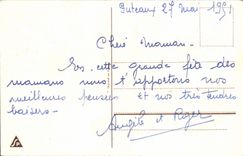 Puteaux 27 Mai 1951
Chère Maman.
En cette grande fête des
mamans nous t'apportons nos
meilleures pensées et nos très tendres
baisers.
Angèle et Roger